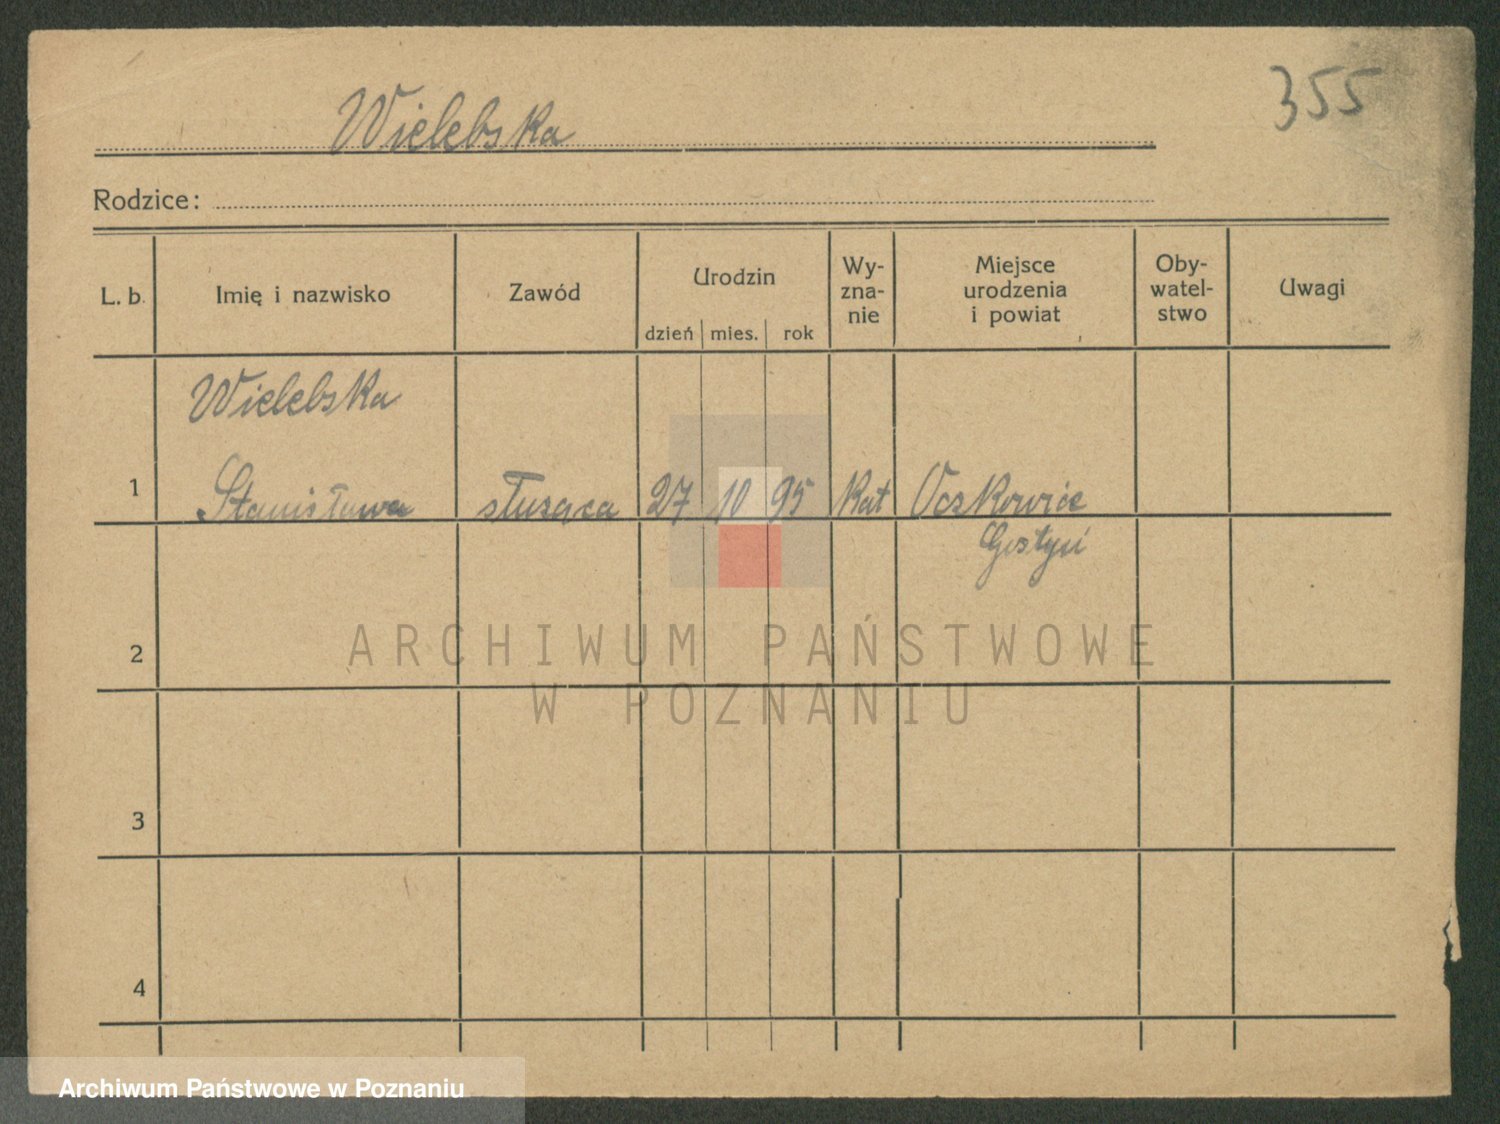 355
Wielebska
Rodzice:
L. b. Imię i nazwisko Zawód Urodzin dzień mies. rok Wy-zna-nie Miejsce urodzenia i powiat Oby-watel-stwo Uwagi
Wielebska
1 Stanisława służąca 27 10 95 Kat Oczkowice
Gostyń
2
ARCHIWUM PAŃSTWOWE
W POZNANIU
3
4
Archiwum Państwowe w Poznaniu